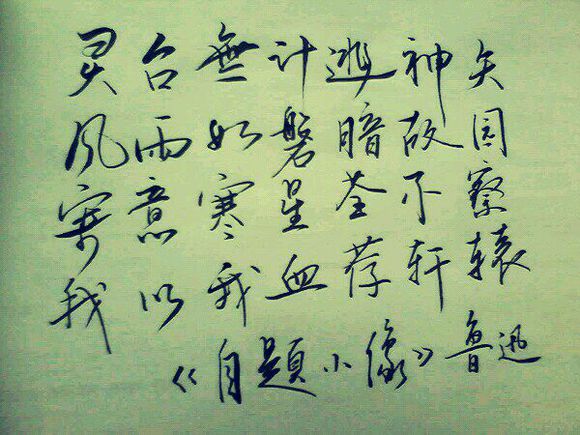 灵台無计逃神矢
风雨如磐暗故园
寄意寒星荃不察
我以我血荐轩辕
《自題小像》鲁迅